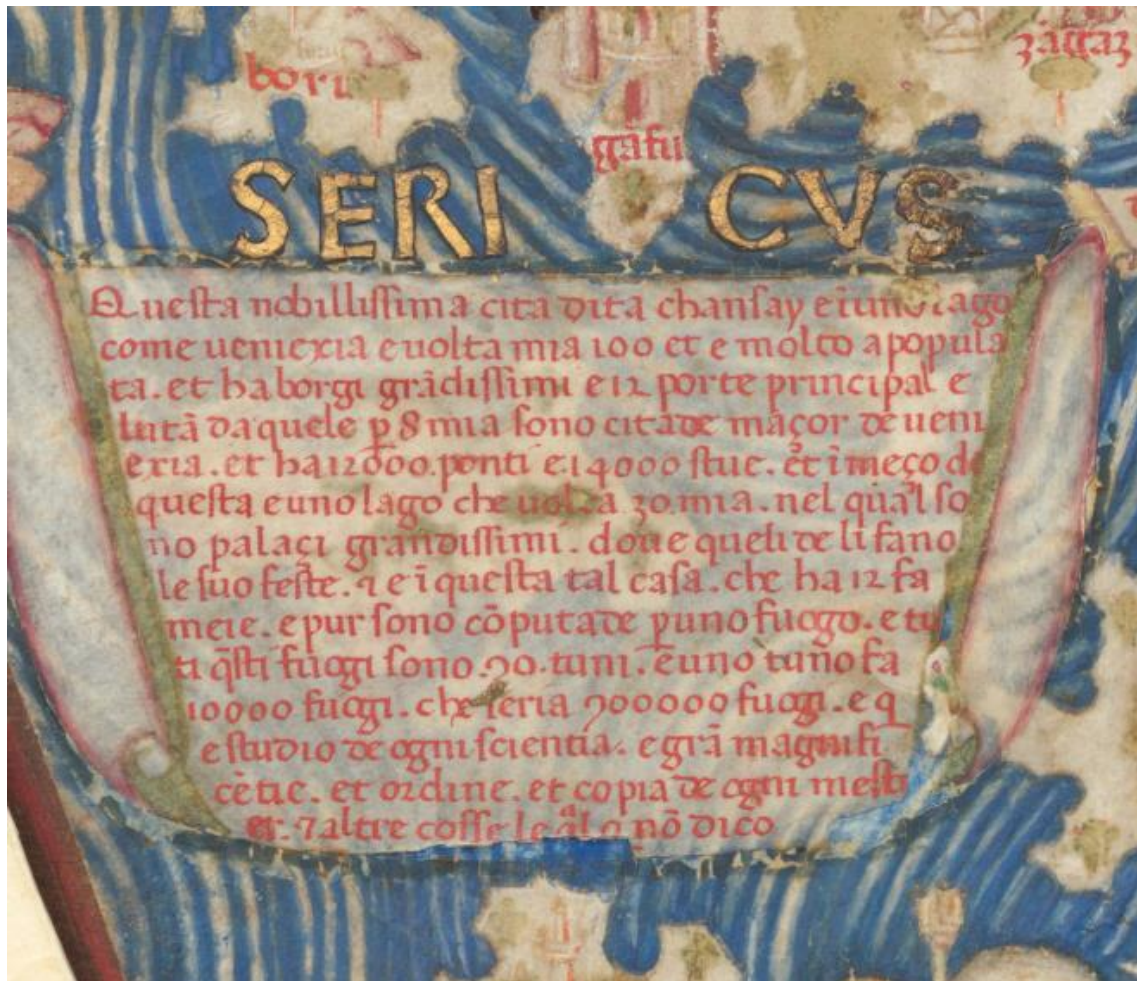 bori
zāççaz
gāfu
SERI CVS
Questa nobillissima cita dita chansay e ī uno lago
come ueniexia e uolta mia 100 et e molto a popula
ta. et ha borgi grādissimi e 12 porte principal e
lutā da quele p̱ 8 mia sono citade maçor de ueni
exia. et ha 12000. ponti e. 14000 stue. et ī meço de
questa e uno lago che uolta 30. mia. nel qual so
no palaçi grandissimi. doue queli de li fano
le suo feste. ⁊ e ī questa tal casa. che ha 12 fa
meie. e pur sono cōputade p̱ uno fuogo. e tu
ti q̄sti fuogi sono. 90. tumi. e uno tumo fa
10000 fuogi. che seria 900000 fuogi. e q
e studio de ogni scientia. e grā magnifi
cētie. et ordine. et copia de ogni mesti
er. ⁊ altre cosse le q̄l q nō dico